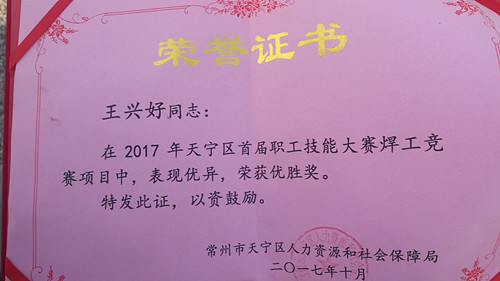 荣誉证书
王兴好同志：
在 2017 年天宁区首届职工技能大赛焊工竞
赛项目中，表现优异，荣获优胜奖。
特发此证，以资鼓励。
常州市天宁区人力资源和社会保障局
二〇一七年十月